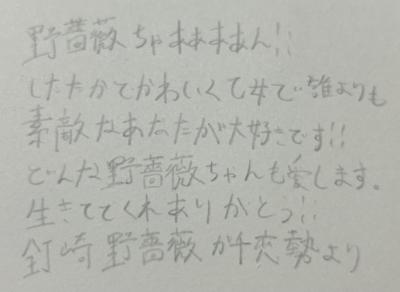 野薔薇ちゃあああん!!
したたかでかわいくて乙女で誰よりも
素敵なあなたが大好きです!!
どんな野薔薇ちゃんも愛します。
生きててくれありがとう!!
釘崎野薔薇ガチ恋勢より